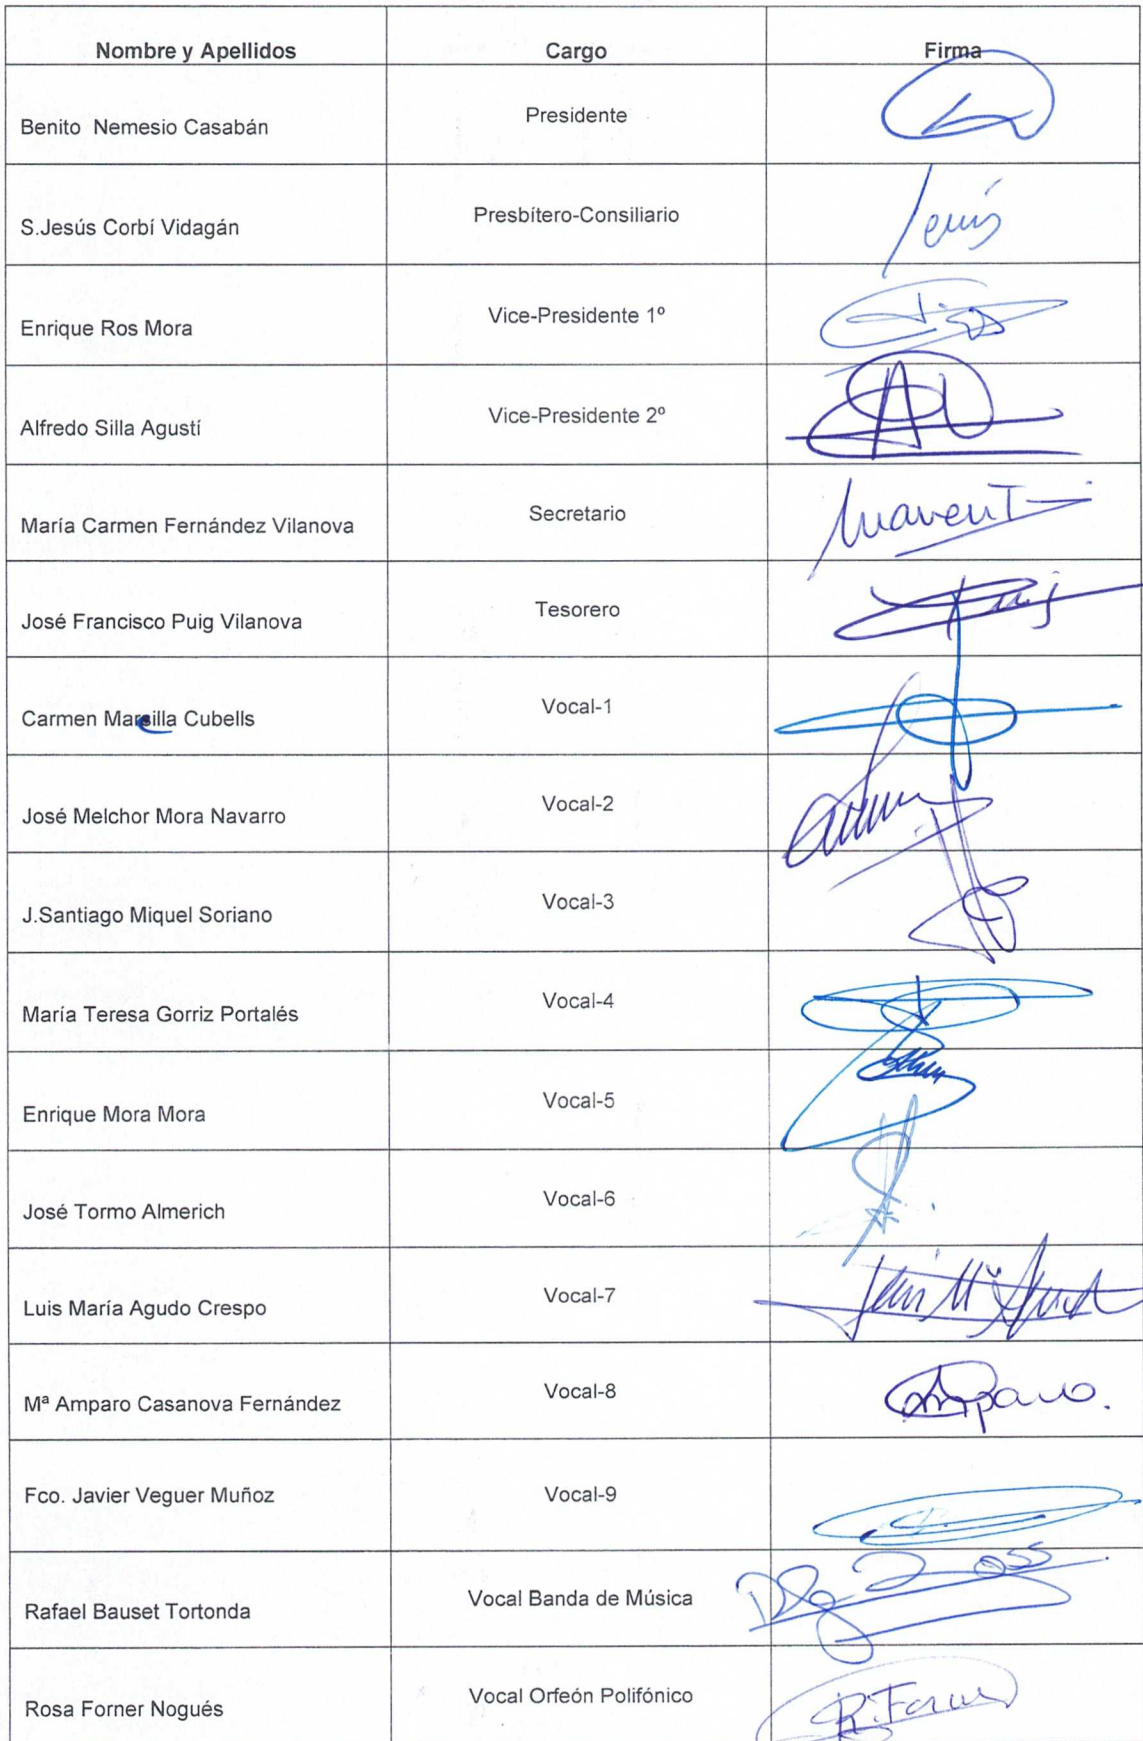 Nombre y Apellidos Cargo Firma
Benito Nemesio Casabán Presidente
S.Jesús Corbí Vidagán Presbítero-Consiliario Jesús
Enrique Ros Mora Vice-Presidente 1º
Alfredo Silla Agustí Vice-Presidente 2º
María Carmen Fernández Vilanova Secretario
José Francisco Puig Vilanova Tesorero Puig
Carmen Marcilla Cubells Vocal-1
José Melchor Mora Navarro Vocal-2
J.Santiago Miquel Soriano Vocal-3
María Teresa Gorriz Portalés Vocal-4
Enrique Mora Mora Vocal-5
José Tormo Almerich Vocal-6
Luis María Agudo Crespo Vocal-7
Mª Amparo Casanova Fernández Vocal-8 Amparo.
Fco. Javier Veguer Muñoz Vocal-9
Rafael Bauset Tortonda Vocal Banda de Música
Rosa Forner Nogués Vocal Orfeón Polifónico R. Forner